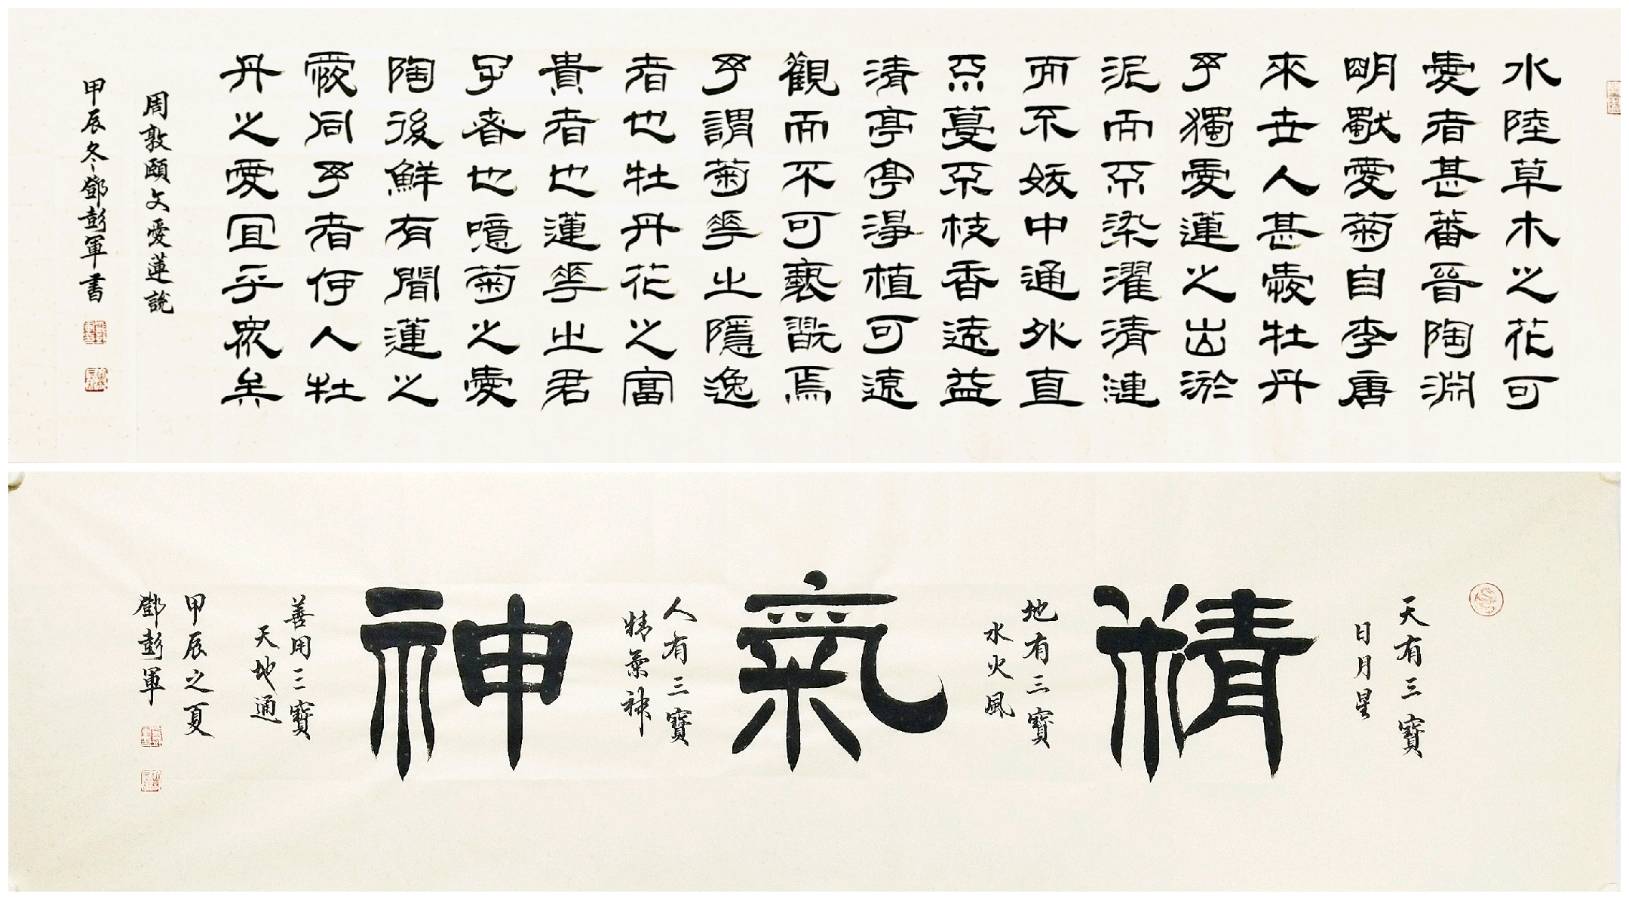 水陸草木之花可
愛者甚蕃晉陶淵
明獨愛菊自李唐
來世人甚愛牡丹
予獨愛蓮之出淤
泥而不染濯清漣
而不妖中通外直
不蔓不枝香遠益
清亭亭淨植可遠
觀而不可褻翫焉
予謂菊華之隱逸
者也牡丹花之富
貴者也蓮華之君
子者也噫菊之愛
陶後鮮有聞蓮之
愛同予者何人牡
丹之愛宜乎衆矣
周敦頤文愛蓮說
甲辰冬鄧彭軍書
天有三寶
日月星
精
地有三寶
水火風
氣
人有三寶
精氣神
神
善用三寶
天地通
甲辰之夏
鄧彭軍